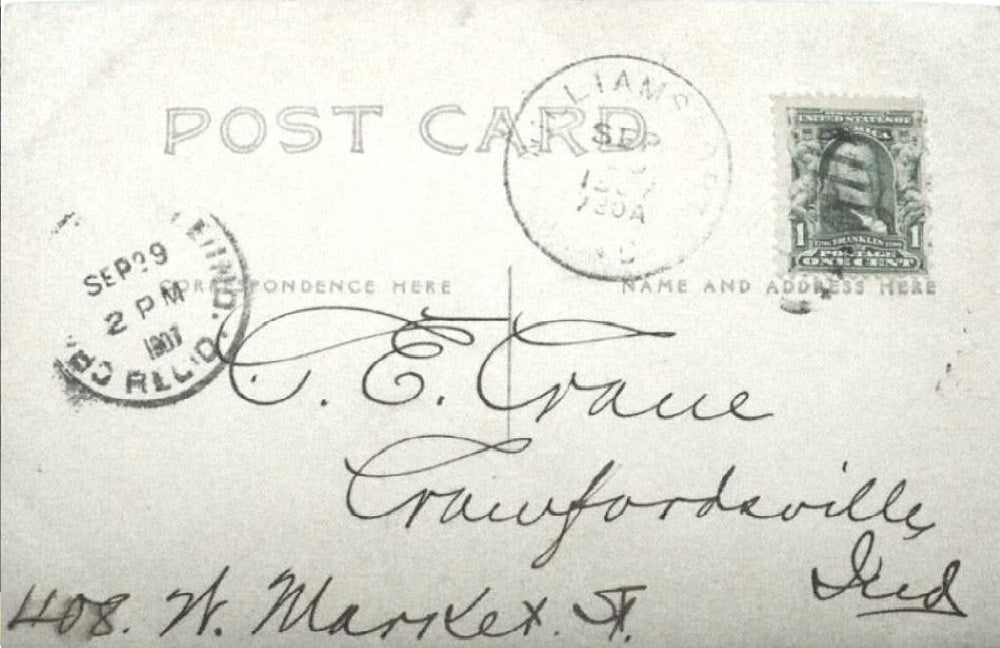 POST CARD
WILLIAMS
SEP
1907
730A
UNITED STATES OF
AMERICA
1 FRANKLIN 1
POSTAGE
ONE CENT
IND.
SEP 29
2 PM
1907
REC'D
CORRESPONDENCE HERE
NAME AND ADDRESS HERE
C. E. Crane
Crawfordsville
Ind
408. W. Market St.